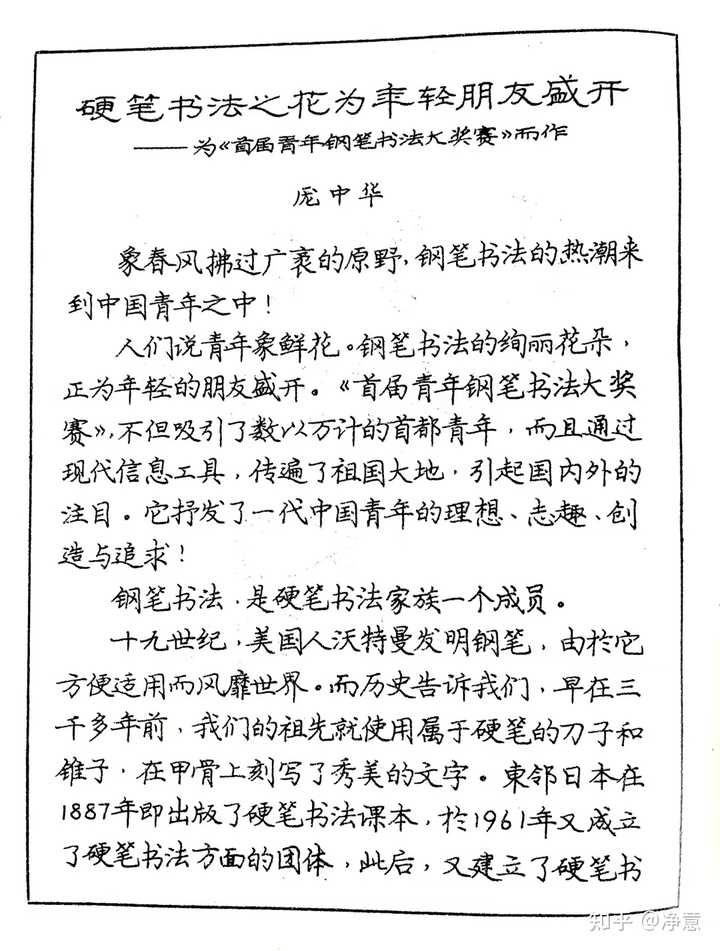 硬笔书法之花为年轻朋友盛开
——为《首届青年钢笔书法大奖赛》而作
庞中华
象春风拂过广袤的原野,钢笔书法的热潮来
到中国青年之中!
人们说青年象鲜花。钢笔书法的绚丽花朵,
正为年轻的朋友盛开。《首届青年钢笔书法大奖
赛》,不但吸引了数以万计的首都青年,而且通过
现代信息工具,传遍了祖国大地,引起国内外的
注目。它抒发了一代中国青年的理想、志趣、创
造与追求!
钢笔书法,是硬笔书法家族一个成员。
十九世纪,美国人沃特曼发明钢笔,由於它
方便适用而风靡世界。而历史告诉我们,早在三
千多年前,我们的祖先就使用属于硬笔的刀子和
锥子,在甲骨上刻写了秀美的文字。東邻日本在
1887年即出版了硬笔书法课本,於1961年又成立
了硬笔书法方面的团体,此后,又建立了硬笔书
知乎 @净意